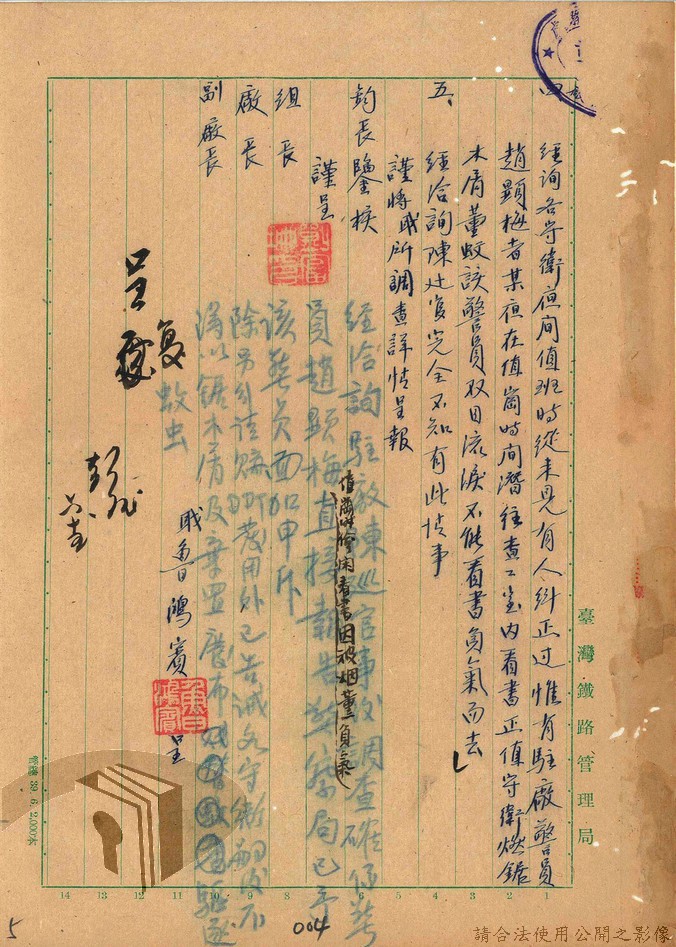 四、經詢各守衛夜間值班時從未見有人糾正過惟有駐廠警員
趙顯梅者某夜在值崗時間潛往查工室內看書正值守衛燃鋸
木屑薰蚊該警員双目流淚不能看書負氣而去
五、經洽詢陳 完全不知有此情事
謹將職所調查詳情呈報
鈞長鑒核
謹呈
組長
廠長
副廠長
職魯鴻賓呈
魯鴻賓
經洽詢駐廠陳巡官事後調查確係警
員趙顯梅值崗時偷閑看書因被烟薰負氣直接報告警察局已予
該警員面加申斥
除另 費用外已告誡各守衛嗣後不
得以鋸木屑及棄置廢布 驅逐
蚊虫
呈
臺灣鐵路管理局
管總 39. 6. 2,000本
14 13 12 11 10 9 8 7 6 5 4 3 2 1
5
004
請合法使用公開之影像